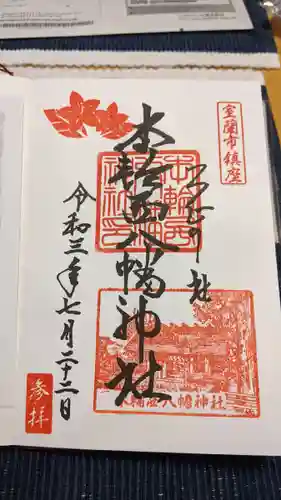 室蘭市鎮座
本輪西八幡神社
令和三年七月二十二日
参拝
本輪西八幡神社